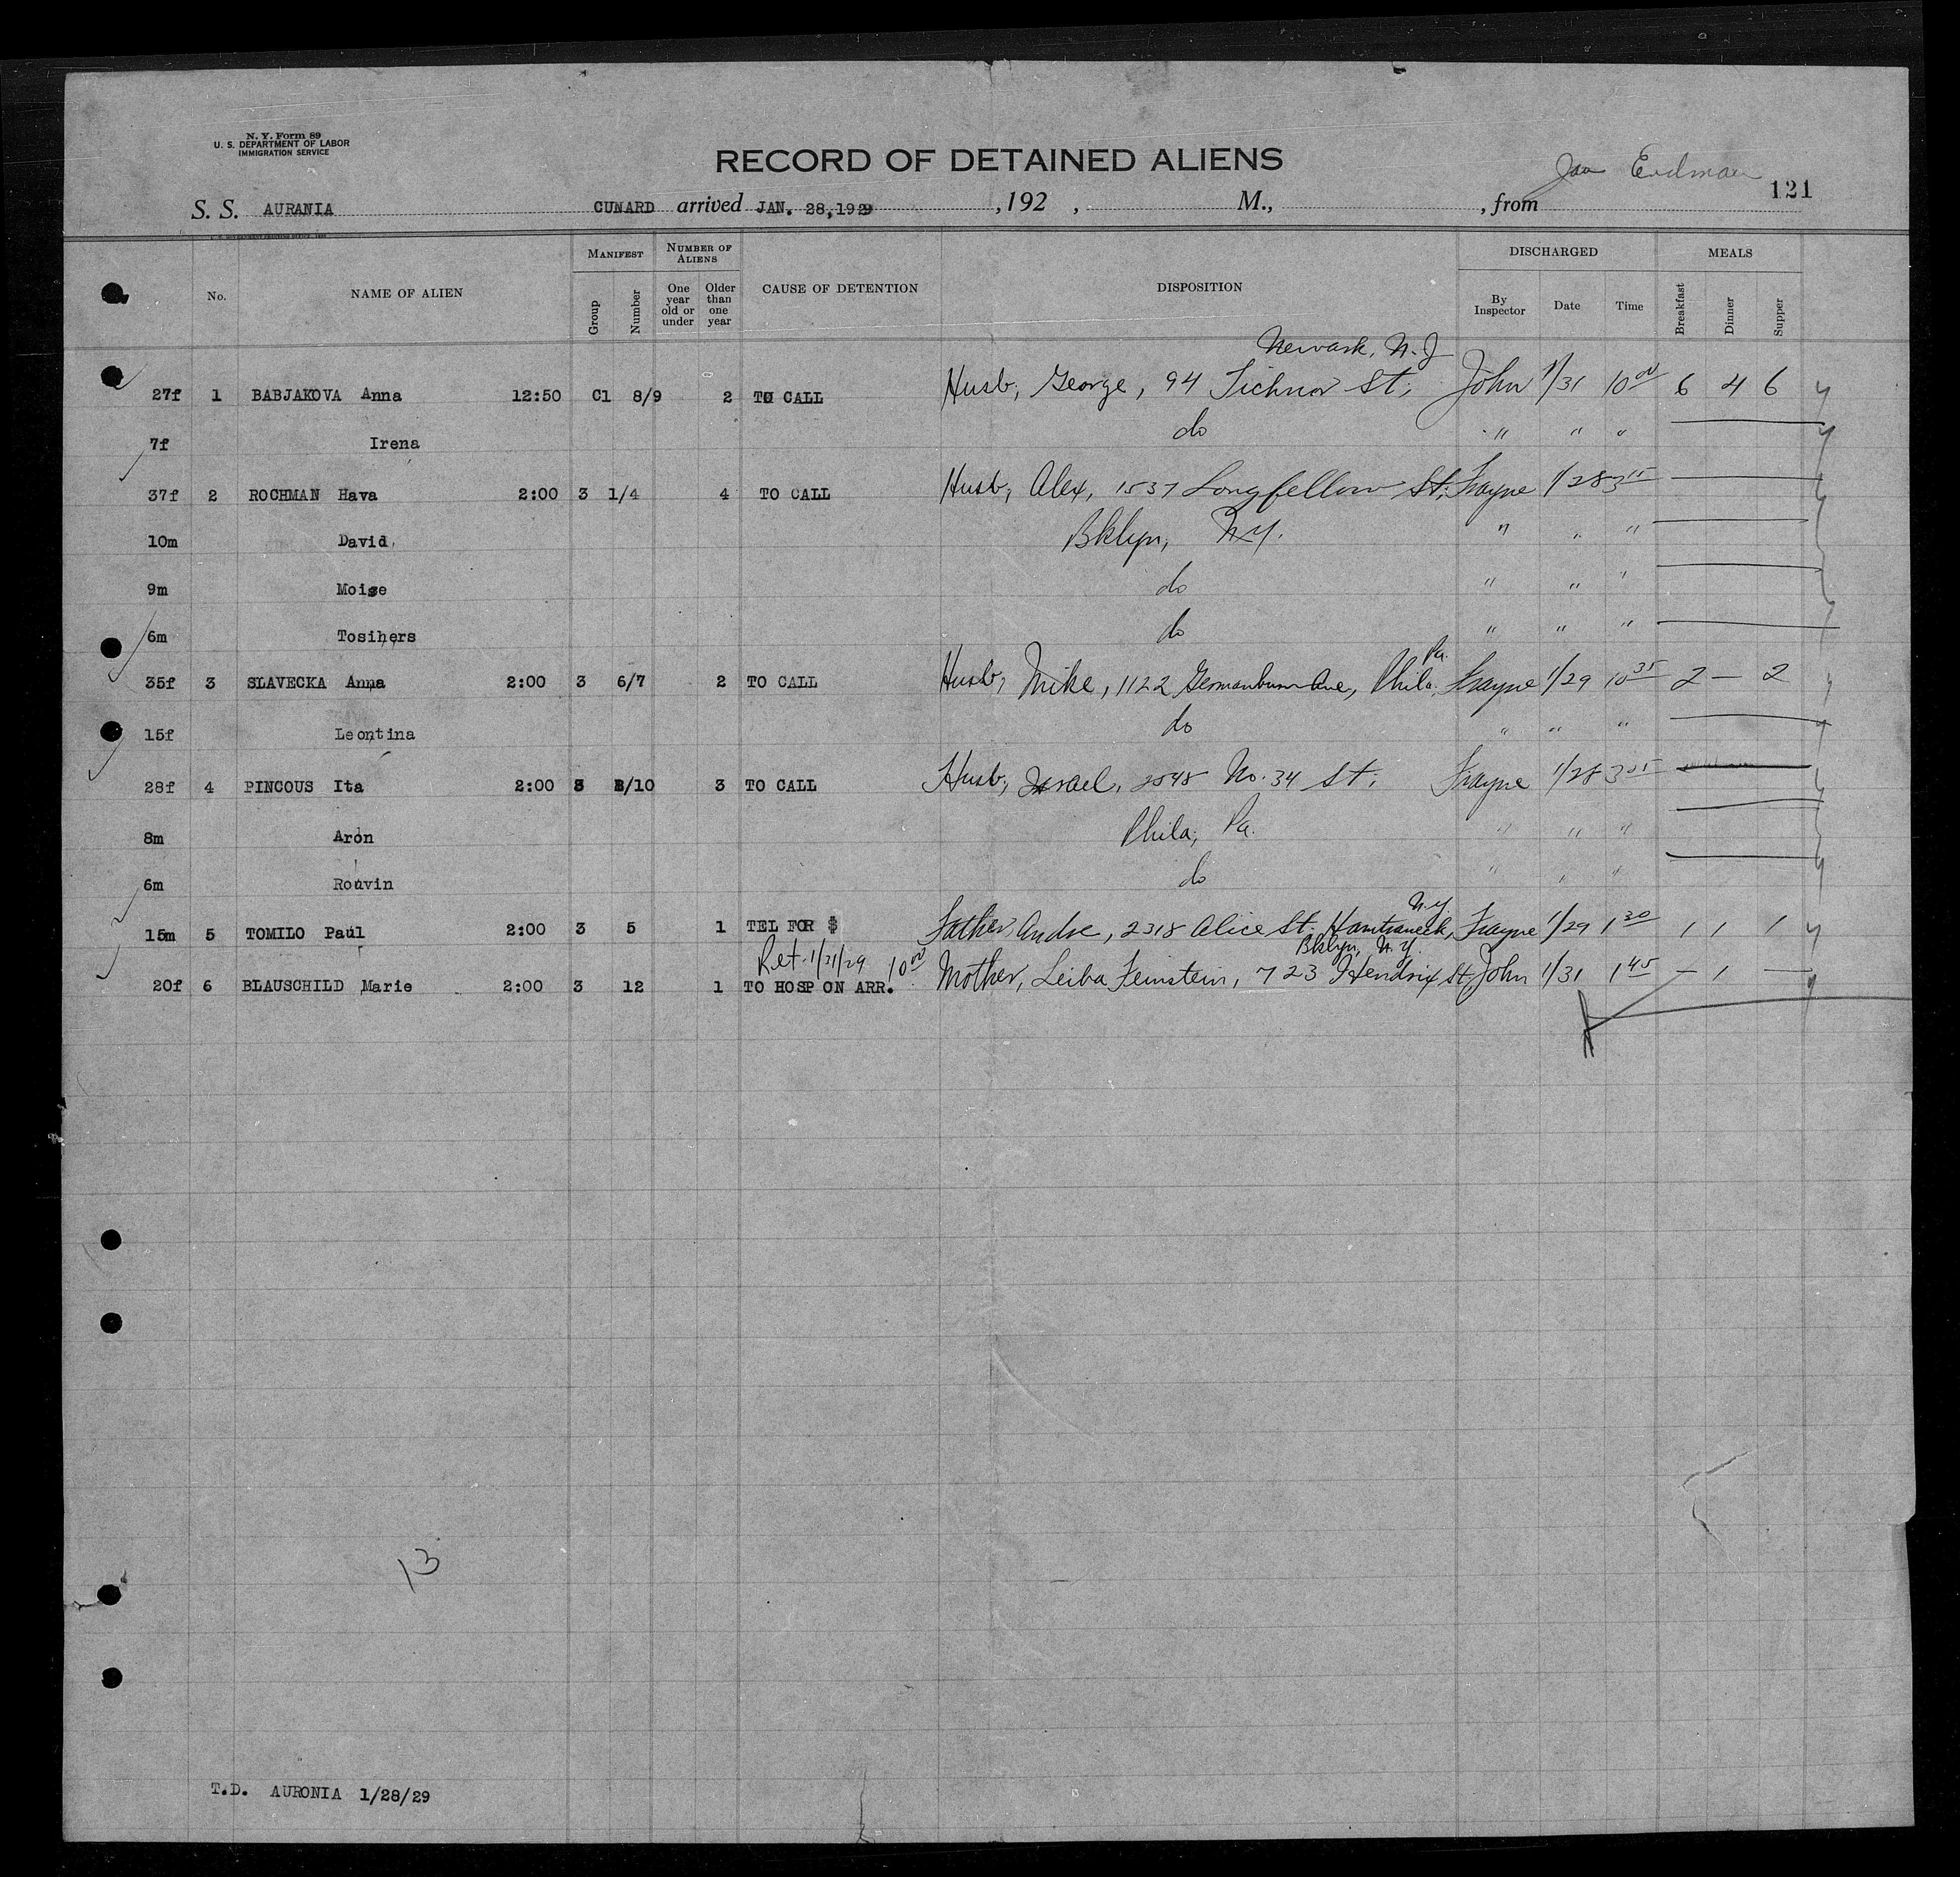 N. Y. Form 89
U. S. DEPARTMENT OF LABOR
IMMIGRATION SERVICE
RECORD OF DETAINED ALIENS
121
S. S. AURANIA CUNARD arrived JAN. 28, 1929 , 192 , M., , from
No. NAME OF ALIEN MANIFEST Group Number NUMBER OF ALIENS One year old or under Older than one year CAUSE OF DETENTION DISPOSITION DISCHARGED By Inspector Date Time MEALS Breakfast Dinner Supper
Newark, N.J
27f 1 BABJAKOVA Anna 12:50 C1 8/9 2 TO CALL Husb, George, 94 Tichnor St; John 1/31 10 00 6 4 6
7f Irena do " " "
37f 2 ROCHMAN Hava 2:00 3 1/4 4 TO CALL Husb, Alex, 1537 Longfellow St; Frayne 1/28 3 15
10m David Bklyn, N.Y. " " "
9m Moise do " " "
6m Tosihers do " " "
Pa.
35f 3 SLAVECKA Anna 2:00 3 6/7 2 TO CALL Husb, Mike, 1122 Ave, Phila. Frayne 1/29 10 35 2 — 2
15f Leontina do " " "
28f 4 PINCOUS Ita 2:00 3 /10 3 TO CALL Husb, Israel, 2548 No. 34 St; Frayne 1/28 3 05
8m Aron Phila, Pa. " " "
6m Rouvin do " " "
N.Y
15m 5 TOMILO Paul 2:00 3 5 1 TEL FOR $ Father, Andre, 2318 Alice St. Frayne 1/29 1 30 1 1 1
Ret. 1/31/29 10 00 Bklyn, N.Y.
20f 6 BLAUSCHILD Marie 2:00 3 12 1 TO HOSP ON ARR. Mother, Leiba Feinstein, 723 Hendrix St, John 1/31 1 45 — 1 —
13
T.D. AURONIA 1/28/29